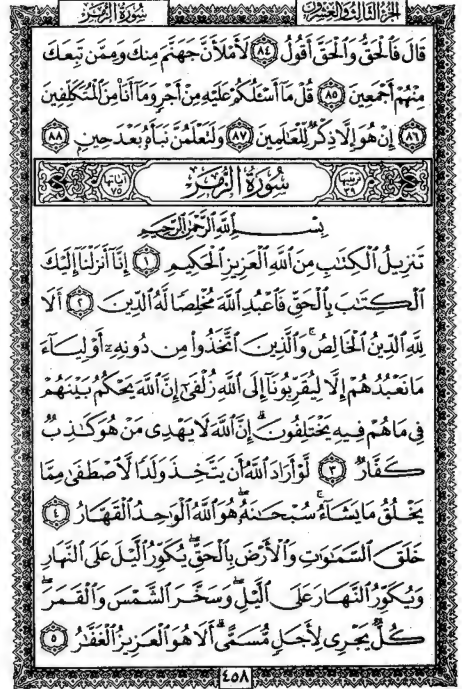 الجزء الثالث والعشرون سورة الزمر
قَالَ فَالْحَقُّ وَالْحَقَّ أَقُولُ ٨٤ لَأَمْلَأَنَّ جَهَنَّمَ مِنكَ وَمِمَّن تَبِعَكَ
مِنْهُمْ أَجْمَعِينَ ٨٥ قُلْ مَا أَسْـَٔلُكُمْ عَلَيْهِ مِنْ أَجْرٍ وَمَا أَنَا۠ مِنَ الْمُتَكَلِّفِينَ
٨٦ إِنْ هُوَ إِلَّا ذِكْرٌ لِّلْعَٰلَمِينَ ٨٧ وَلَتَعْلَمُنَّ نَبَأَهُۥ بَعْدَ حِينٍ ٨٨
ترتيبها ٣٩ سورة الزمر آياتها ٧٥
بِسْمِ اللَّهِ الرَّحْمَٰنِ الرَّحِيمِ
تَنزِيلُ الْكِتَٰبِ مِنَ اللَّهِ الْعَزِيزِ الْحَكِيمِ ١ إِنَّا أَنزَلْنَا إِلَيْكَ
الْكِتَٰبَ بِالْحَقِّ فَاعْبُدِ اللَّهَ مُخْلِصًا لَّهُ الدِّينَ ٢ أَلَا
لِلَّهِ الدِّينُ الْخَالِصُ ۚ وَالَّذِينَ اتَّخَذُوا۟ مِن دُونِهِۦ أَوْلِيَاءَ
مَا نَعْبُدُهُمْ إِلَّا لِيُقَرِّبُونَا إِلَى اللَّهِ زُلْفَىٰ إِنَّ اللَّهَ يَحْكُمُ بَيْنَهُمْ
فِى مَا هُمْ فِيهِ يَخْتَلِفُونَ ۗ إِنَّ اللَّهَ لَا يَهْدِى مَنْ هُوَ كَٰذِبٌ
كَفَّارٌ ٣ لَّوْ أَرَادَ اللَّهُ أَن يَتَّخِذَ وَلَدًا لَّاصْطَفَىٰ مِمَّا
يَخْلُقُ مَا يَشَاءُ ۚ سُبْحَٰنَهُۥ ۖ هُوَ اللَّهُ الْوَٰحِدُ الْقَهَّارُ ٤
خَلَقَ السَّمَٰوَٰتِ وَالْأَرْضَ بِالْحَقِّ ۖ يُكَوِّرُ الَّيْلَ عَلَى النَّهَارِ
وَيُكَوِّرُ النَّهَارَ عَلَى الَّيْلِ ۖ وَسَخَّرَ الشَّمْسَ وَالْقَمَرَ ۖ
كُلٌّ يَجْرِى لِأَجَلٍ مُّسَمًّى ۗ أَلَا هُوَ الْعَزِيزُ الْغَفَّٰرُ ٥
٤٥٨